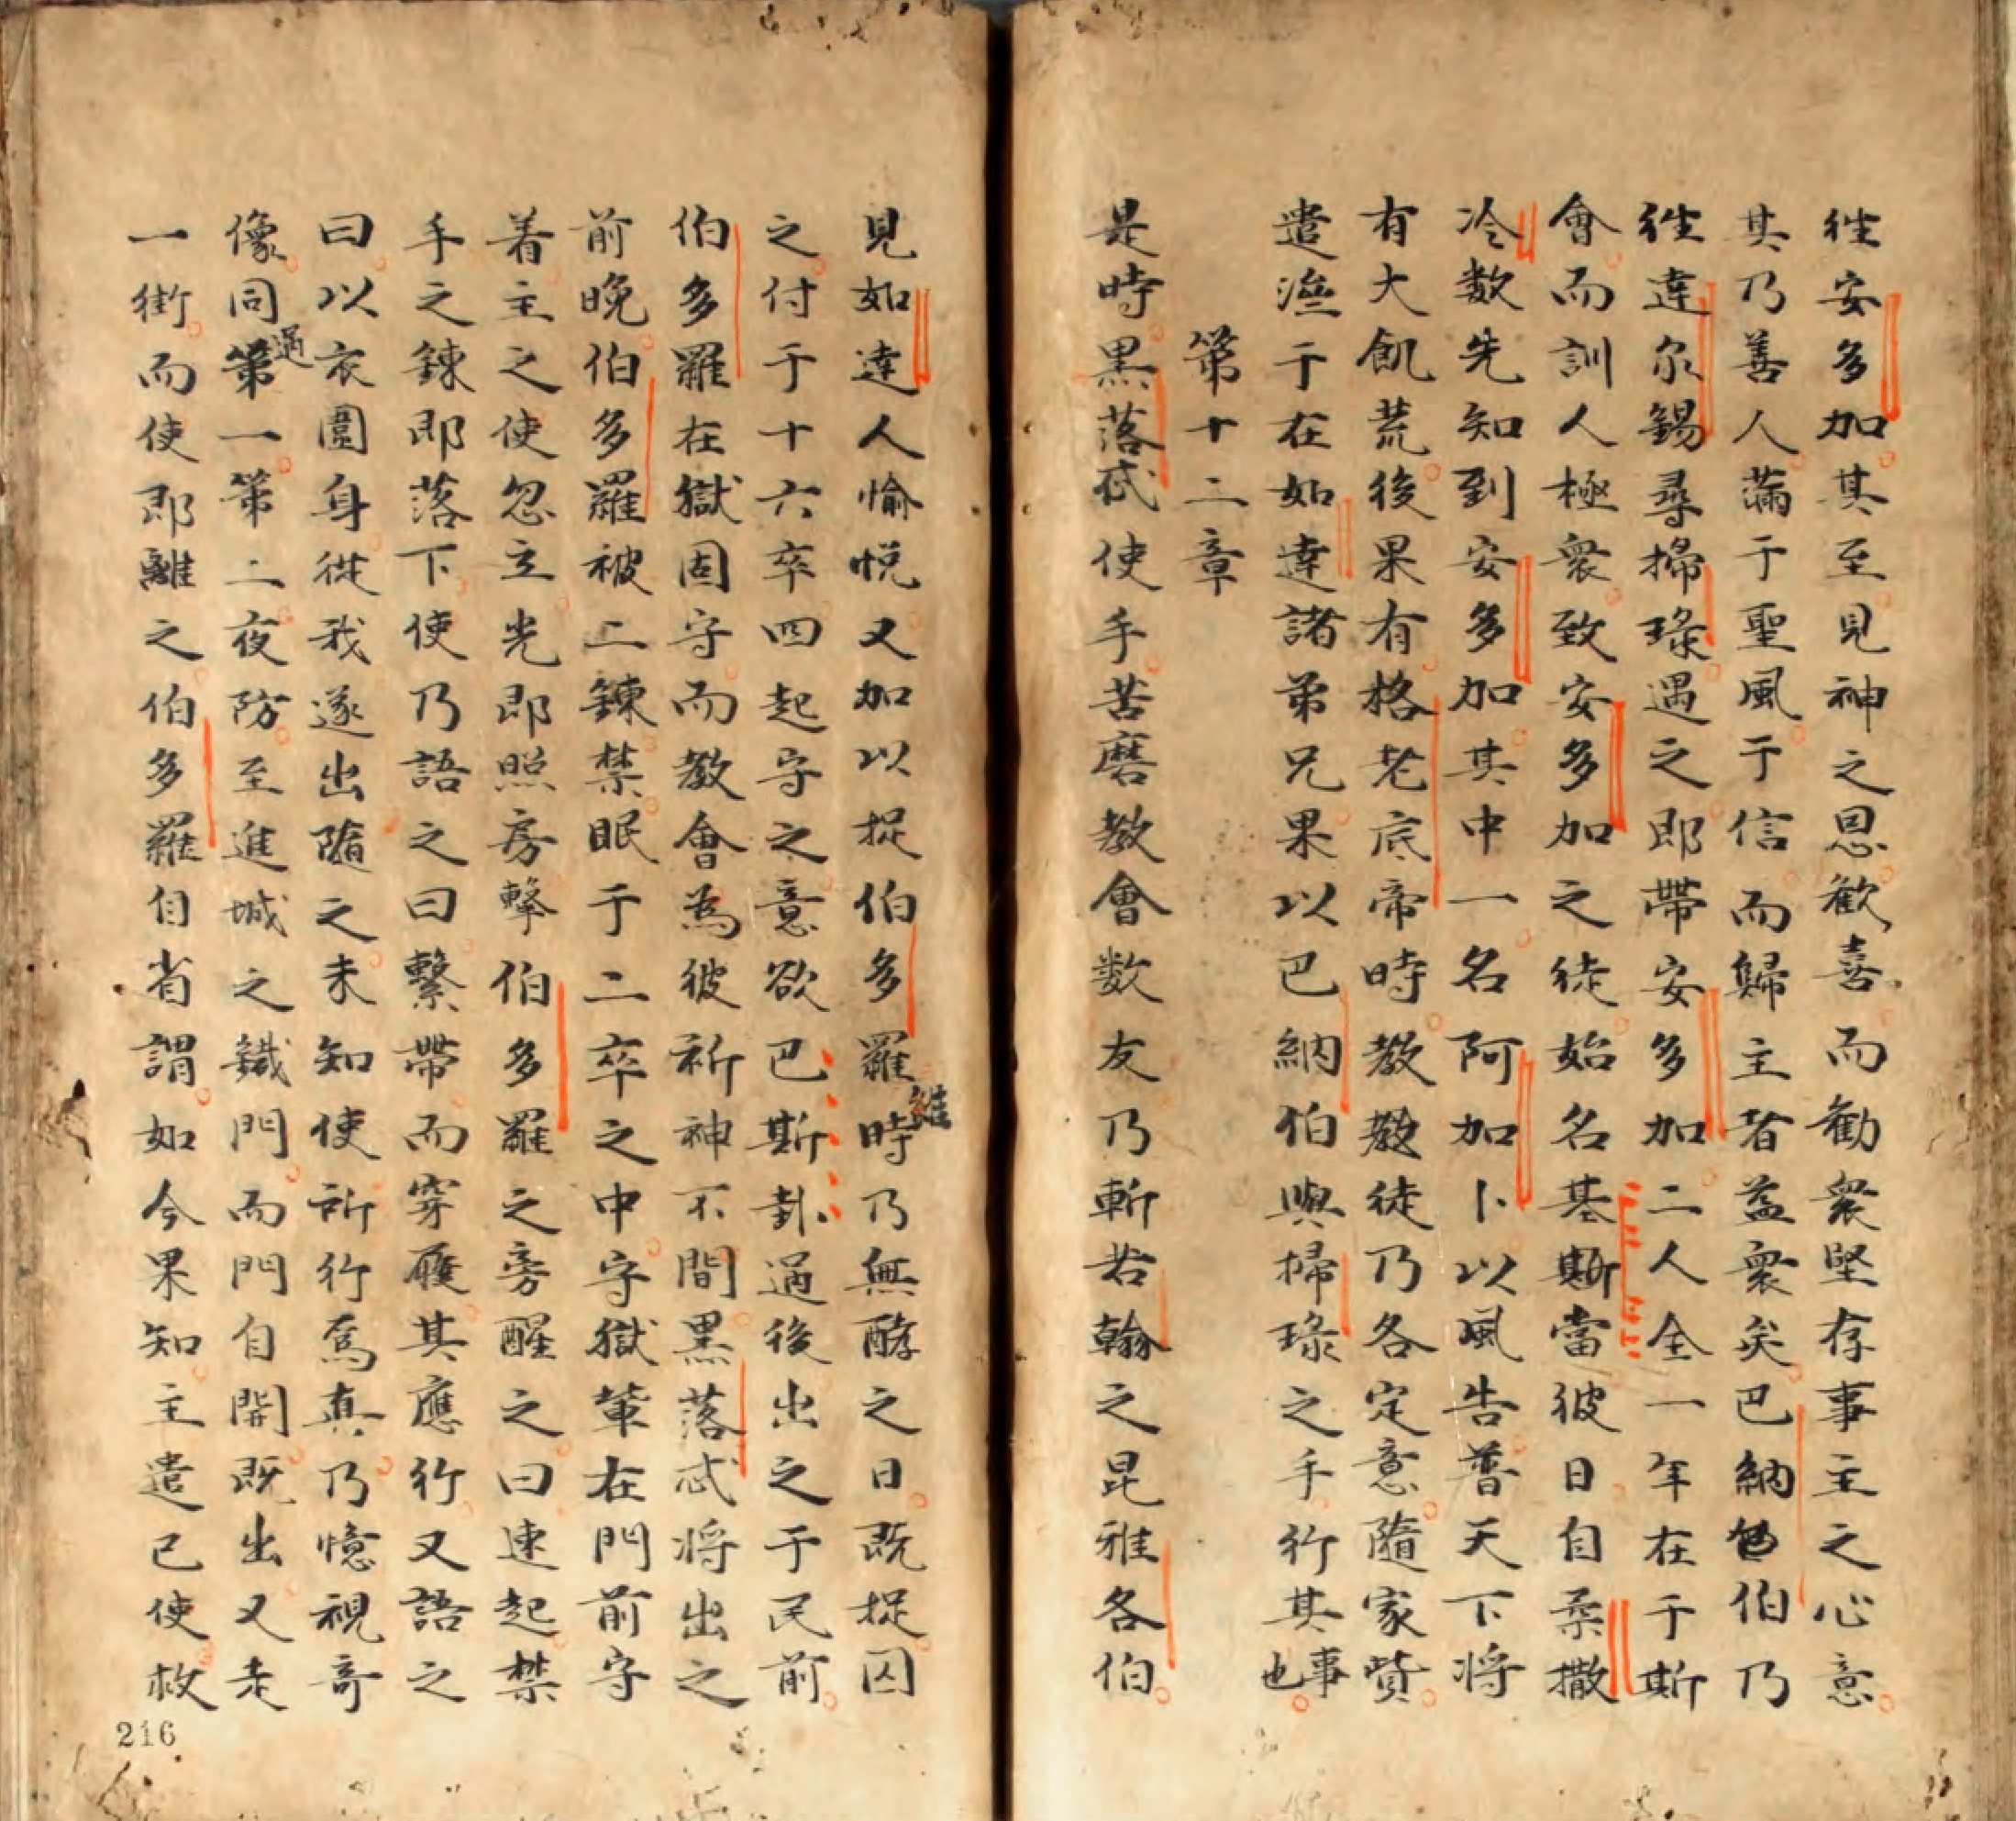 徃安多加其至見神之恩歡喜而勸衆堅存事主之心意
其乃善人滿于聖風于信而歸主者益衆矣巴納伯乃
徃達尔錫尋掃琭遇之即帶安多加二人全一年在于斯
會而訓人極衆致安多加之徒始名基斯當彼日自柔撒
冷数先知到安多加其中一名阿加卜以風告普天下将
有大飢荒後果有格老底帝時教教徒乃各定意隨家貲
遣𣵀于在如達諸弟兄果以巴納伯與掃琭之手行其事也
第十二章
是時黒落忒使手苦磨教會数友乃斬若翰之昆雅各伯
見如達人愉悦又加以捉伯多羅時乃無酵之日既捉囚
之付于十六卒四起守之意欲巴斯卦過後出之于民前
伯多羅在獄固守而教會為彼祈神不間黒落忒将出之
前晩伯多羅被二鍊禁眠于二卒之中守獄軰在門前守
着主之使忽立光即照房擊伯多羅之旁醒之曰速起禁
手之鍊即落下使乃語之曰繫帶而穿屨其應行又語之
曰以衣圍身從我遂出隨之未知使所行爲真乃憶視奇
像同過第一第二夜防至進城之鐵門而門自開既出又走
一街而使即離之伯多羅自省謂如今果知主遣已使救
216